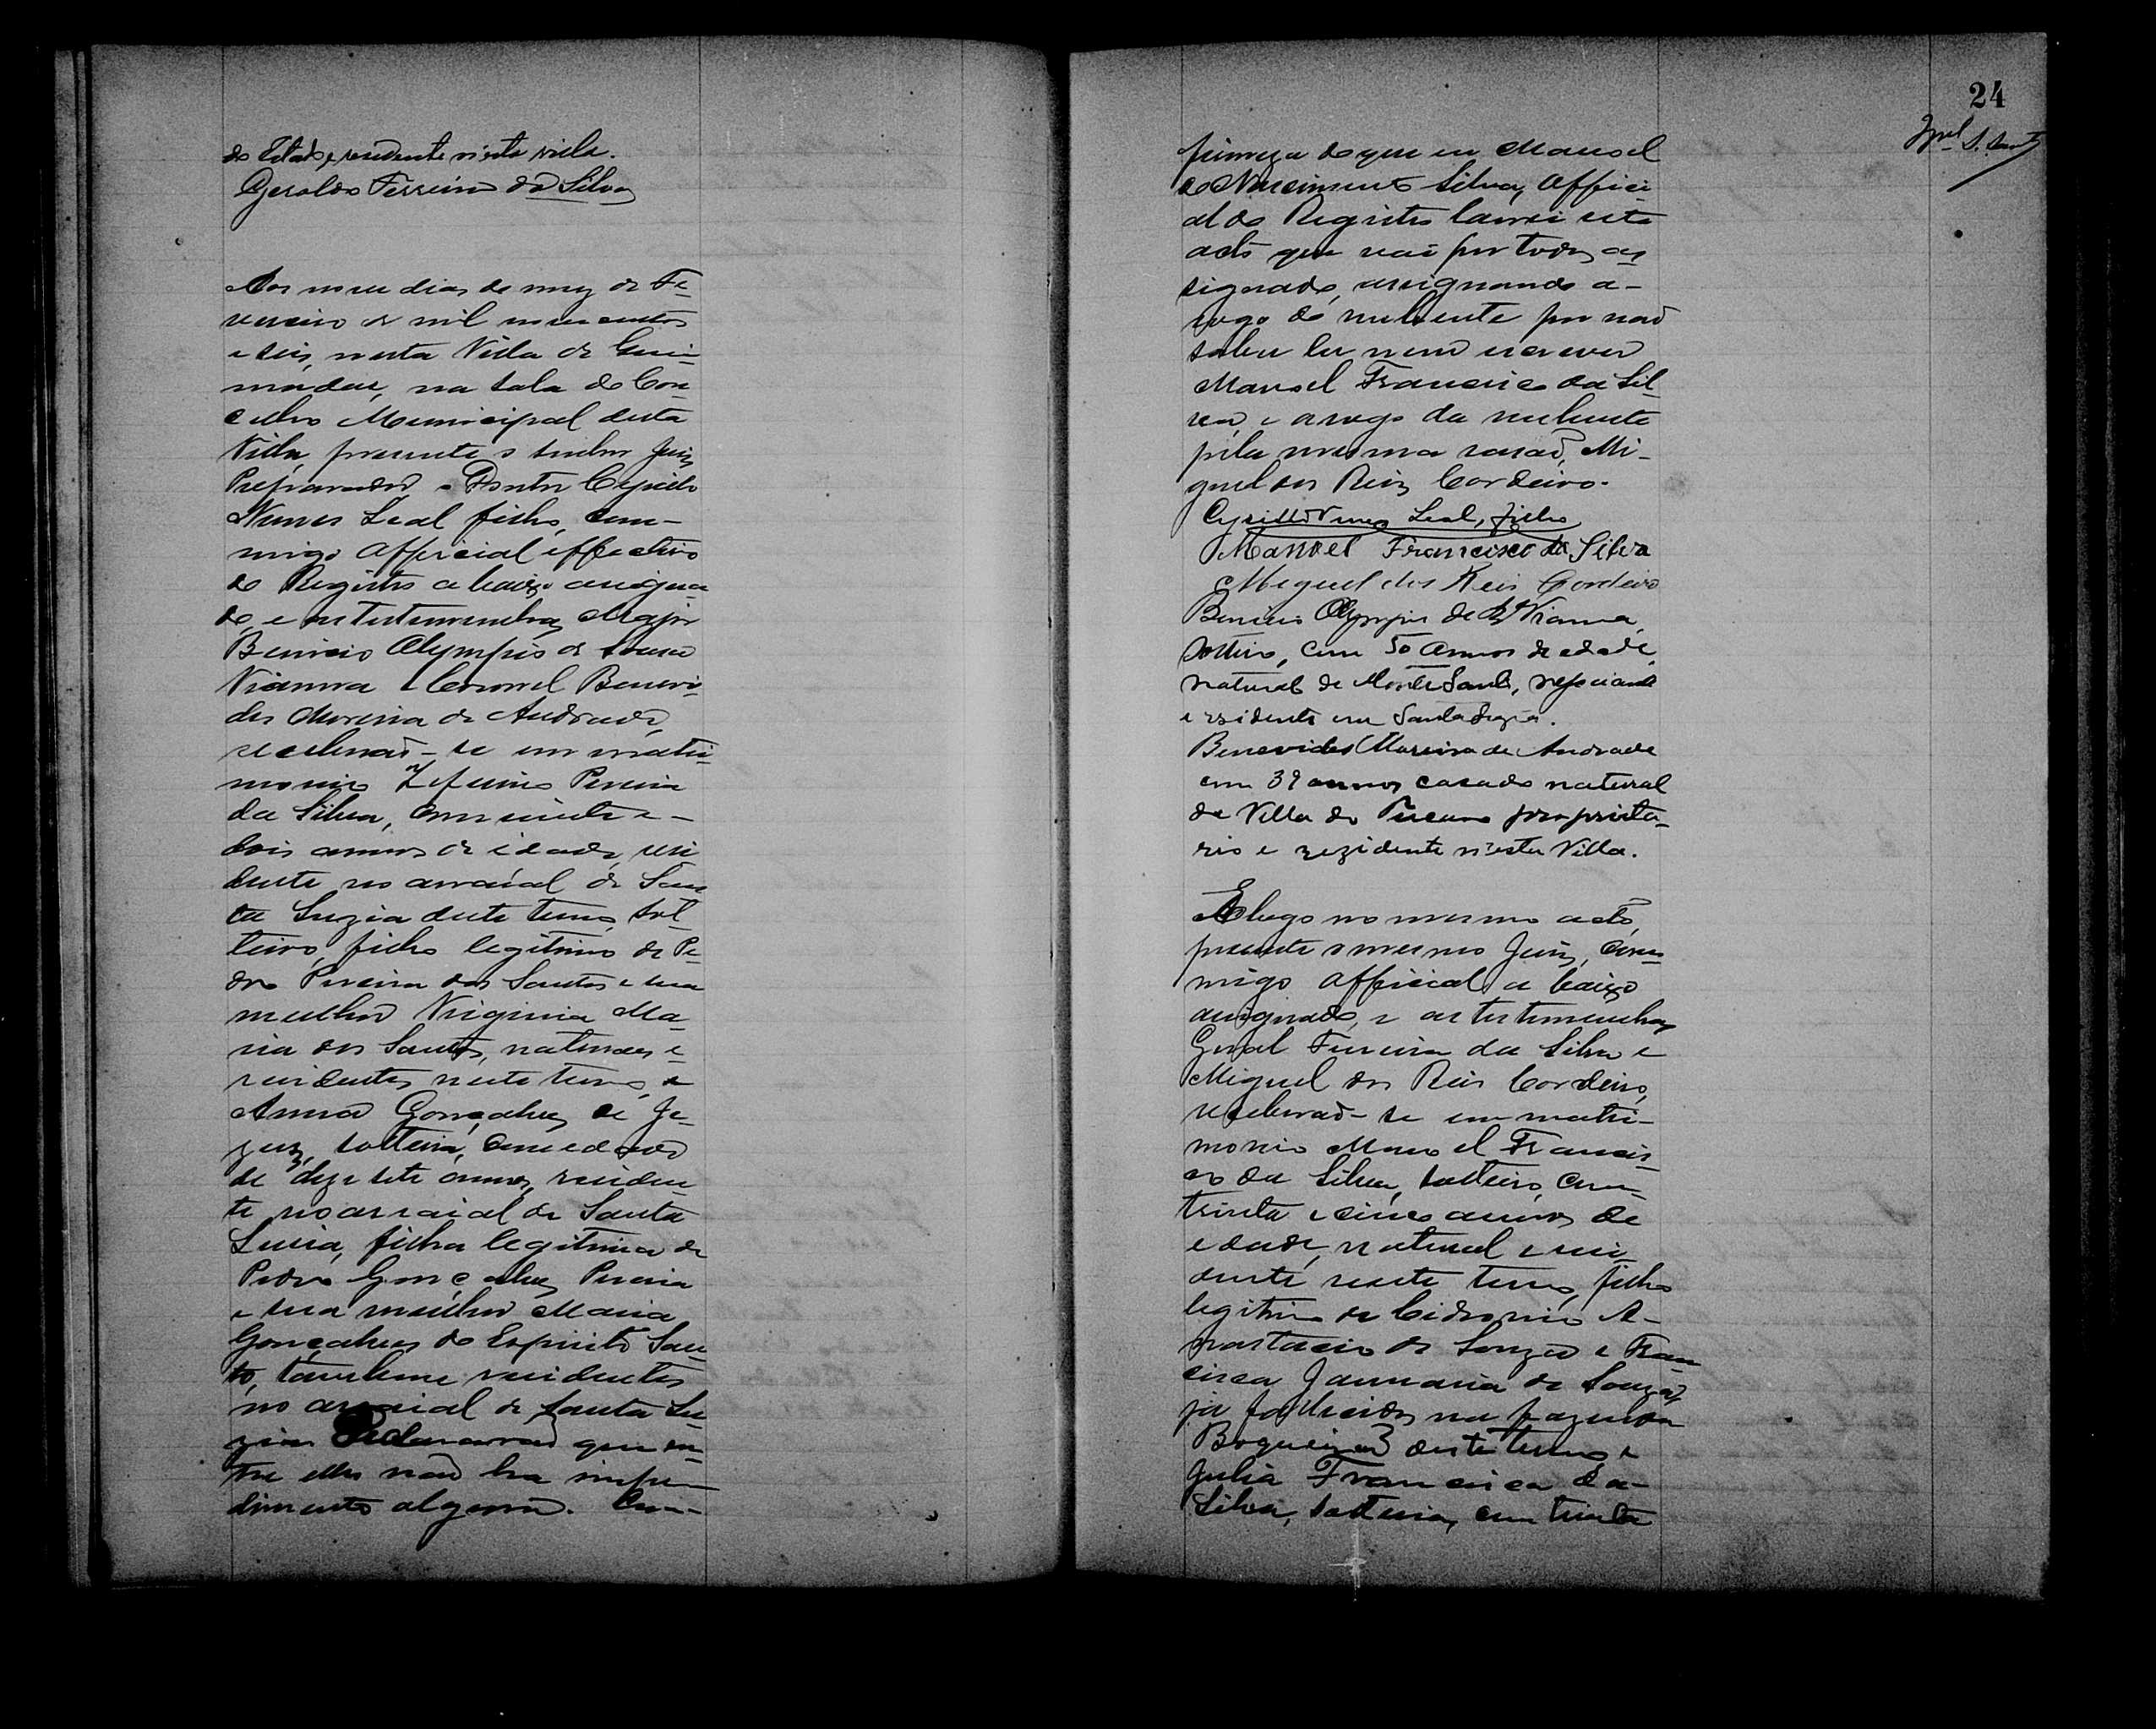 do Estado, e residente n'esta villa.
Geraldo Ferreira da Silva
Aos nove dias do mez de Fe-
vereiro de mil nove centos
e seis, nesta Villa de Quei-
madas, na sala do Con-
celho Municipal desta
Villa, presente o senhor Juiz
Preparador o Doutor Cyrillo
Nunes Leal filho, com-
migo Official effectivo
do Registro a baixo assigna-
do, e as testemunhas Major
Benicio Olympio de Souza
Vianna e Coronel Benevi-
des Moreira de Andrade,
receberaõ-se em matri-
monio Zeferino Pereira
da Silva, com vinte e-
dois annos de idade, resi-
dente no arraial de San-
ta Luzia deste termo, sol-
teiro, filho legitimo de Pe-
dro Pereira dos Santos e sua
mulher Virginia Ma-
ria dos Santos, naturaes e
residentes neste termo, e
Anna Gonçalves de Je-
zuz, solteira, com edade
de deze sete annos, residen-
te no arraial de Santa
Lusia, filha legitima de
Pedro Gonçalves Pereira
e sua mulher Maria
Gonçalves do Espirito San-
to, tambem residentes
no arraial de Santa Lu-
zia. Declararaõ que en-
tre elles naõ ha impe-
dimento algum. Em-
24
firmeza do que eu Manoel
do Nascimento Silva, Offici-
al do Registro lavrei este
acto que vai por todos as-
signado, assignando a-
rogo do nubente por naõ
saber ler nem escrever
Manoel Francisco da Sil-
va, e a rogo da nubente
pela mesma rasaõ, Mi-
guel dos Reis Cordeiro.
Cyrillo Nunes Leal, filho
Manoel Francisco da Silva
Miguel dos Reis Cordeiro
Benicio Olympio de Vianna,
solteiro, com 50 annos de edade,
natural de Monte Santo, negociante
e residente em Santa Luzia.
Benevides Moreira de Andrade
com 39 annos casado natural
da Villa do Tucano proprieta-
rio e rezidente n'esta Villa.
E logo no mesmo acto,
presente o mesmo Juiz, com-
migo Official a baixo
assignado, e as testemunhas
Geral Ferreira da Silva e
Miguel dos Reis Cordeiro,
receberaõ-se em matri-
monio Manoel Francis-
co da Silva, solteiro, com
trinta e cinco annos de
edade, natural e resi-
dente neste termo, filho
legitimo de Cidronio A-
nastacio de Souza e Fran-
cisca Januaria de Souza,
ja fallecidos na fazenda
Boqueiraõ deste termo e
Julia Francisca da-
Silva, solteira, com trinta